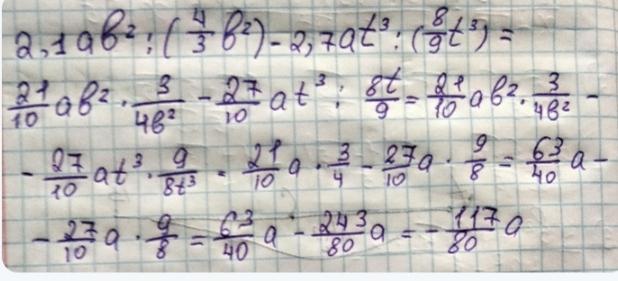 2,1ав² : (4/3 в²) - 2,7at³ : (8/9 t³) =
21/10 ав² · 3/4в² - 27/10 at³ : 8t/9 = 21/10 ав² · 3/4в² -
- 27/10 at³ · 9/8t³ = 21/10 a · 3/4 - 27/10 a · 9/8 = 63/40 a -
- 27/10 a · 9/8 = 63/40 a - 243/80 a = - 117/80 a